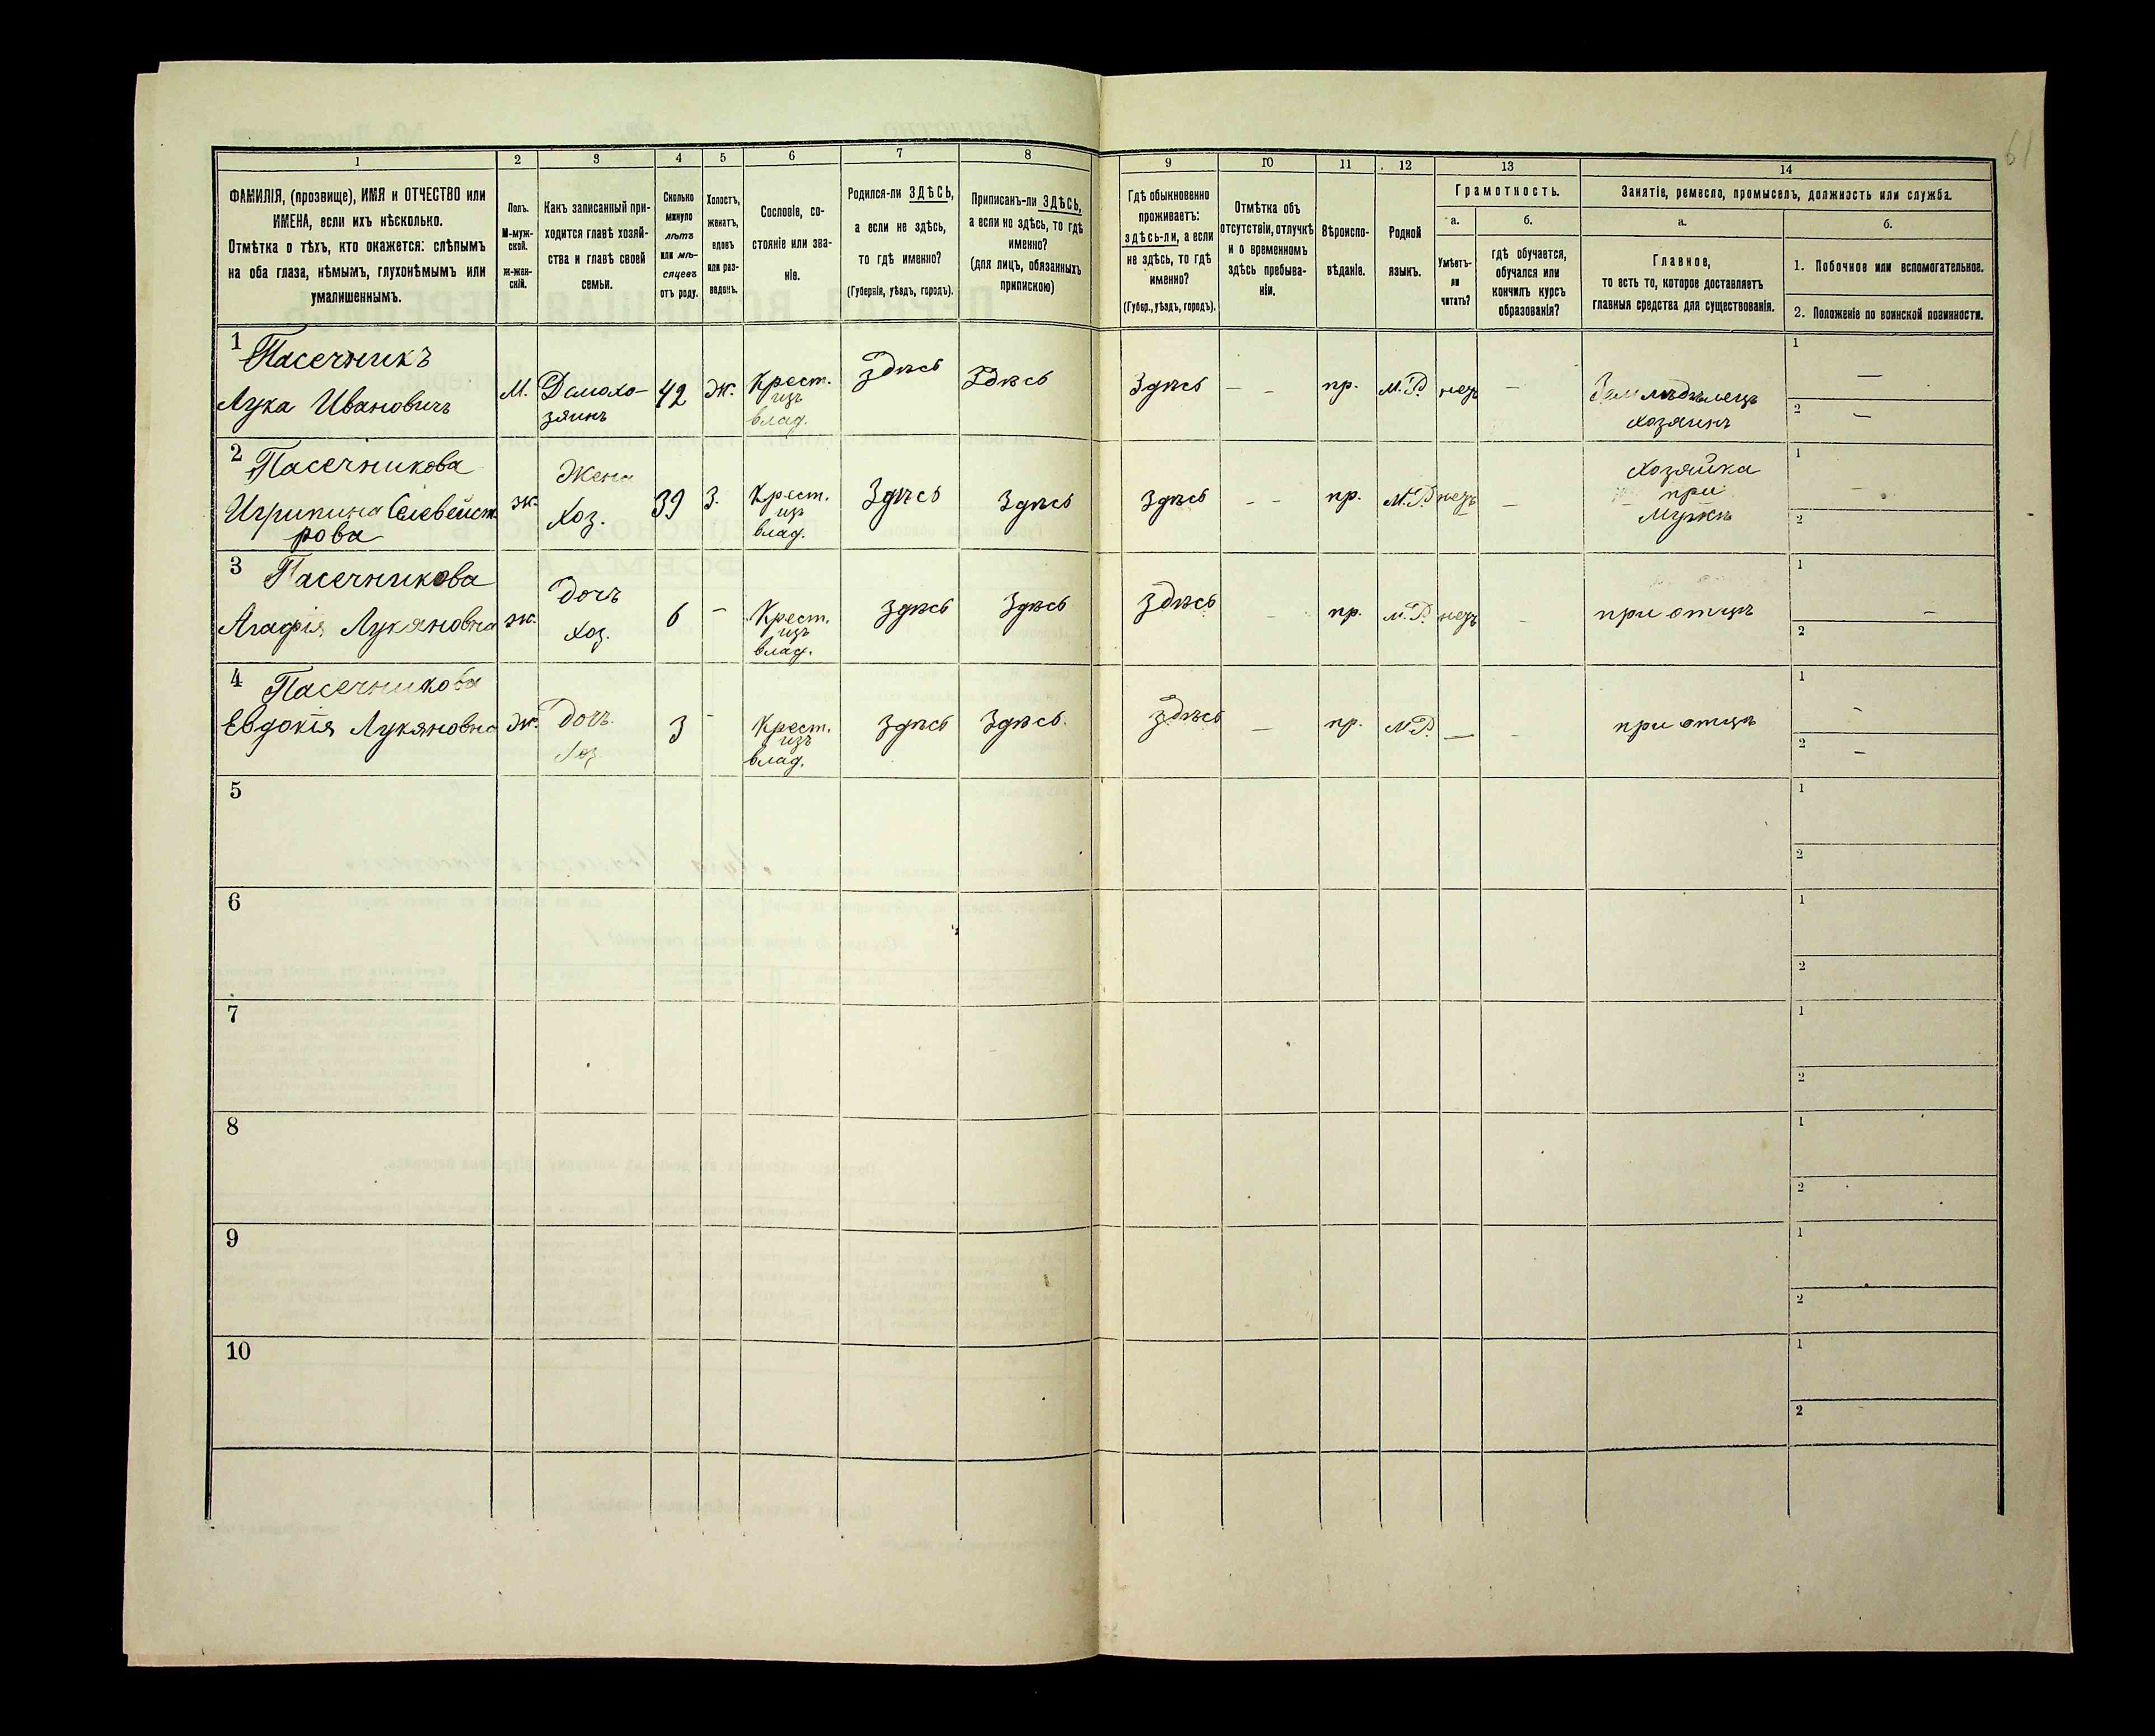 61
1 2 3 4 5 6 7 8 9 10 11 12 13 14
ФАМИЛІЯ, (прозвище), ИМЯ и ОТЧЕСТВО или
ИМЕНА, если ихъ нѣсколько.
Отмѣтка о тѣхъ, кто окажется: слѣпымъ
на оба глаза, нѣмымъ, глухонѣмымъ или
умалишеннымъ.
Полъ.
М-муж-
ской.
ж-жен-
скій.
Какъ записанный при-
ходится главѣ хозяй-
ства и главѣ своей
семьи.
Сколько
минуло
лѣтъ
или мѣ-
сяцевъ
отъ роду.
Холостъ,
женатъ,
вдовъ
или раз-
веденъ.
Сословіе, со-
стояніе или зва-
ніе.
Родился-ли ЗДѢСЬ,
а если не здѣсь,
то гдѣ именно?
(Губернія, уѣздъ, городъ).
Приписанъ-ли ЗДѢСЬ,
а если не здѣсь, то гдѣ
именно?
(для лицъ, обязанныхъ
припискою)
Гдѣ обыкновенно
проживаетъ:
здѣсь-ли, а если
не здѣсь, то гдѣ
именно?
(Губер., уѣздъ, городъ).
Отмѣтка объ
отсутствіи, отлучкѣ
и о временномъ
здѣсь пребыва-
ніи.
Вѣроиспо-
вѣданіе.
Родной
языкъ.
Грамотность.
а.
Умѣетъ-
ли
читать?
б.
гдѣ обучается,
обучался или
кончилъ курсъ
образованія?
Занятіе, ремесло, промыселъ, должность или служба.
а.
Главное,
то есть то, которое доставляетъ
главныя средства для существованія.
б.
1. Побочное или вспомогательное.
2. Положеніе по воинской повинности.
1 Пасечникъ
Лука Ивановичъ
М.
Домохо-
зяинъ
42
Ж.
Крест.
изъ
влад.
Здѣсь
Здѣсь
Здѣсь
— —
пр.
М.Р.
нѣтъ
—
Землѣдѣлецъ
хозяинъ
1 —
2 —
2 Пасечникова
Игрипина Селевейст
рова
ж.
Жена
Хоз.
39
З.
Крест.
изъ
влад.
Здѣсь
Здѣсь
Здѣсь
— —
пр.
М.Р.
нѣтъ
—
Хозяйка
при
мужѣ
1 —
2
3 Пасечникова
Агафія Лукяновна
ж.
Дочъ
Хоз.
6
—
Крест.
изъ
влад.
Здѣсь
Здѣсь
Здѣсь
—
пр.
М.Р.
нѣтъ
—
при отцѣ
1 —
2
4 Пасечникова
Евдокія Лукяновна
Ж.
Дочъ
Хоз
3
—
Крест.
изъ
влад.
Здѣсь
Здѣсь
Здѣсь
—
пр.
М.Р.
—
—
при отцѣ
1 —
2 —
5
1
2
6
1
2
7
1
2
8
1
2
9
1
2
10
1
2